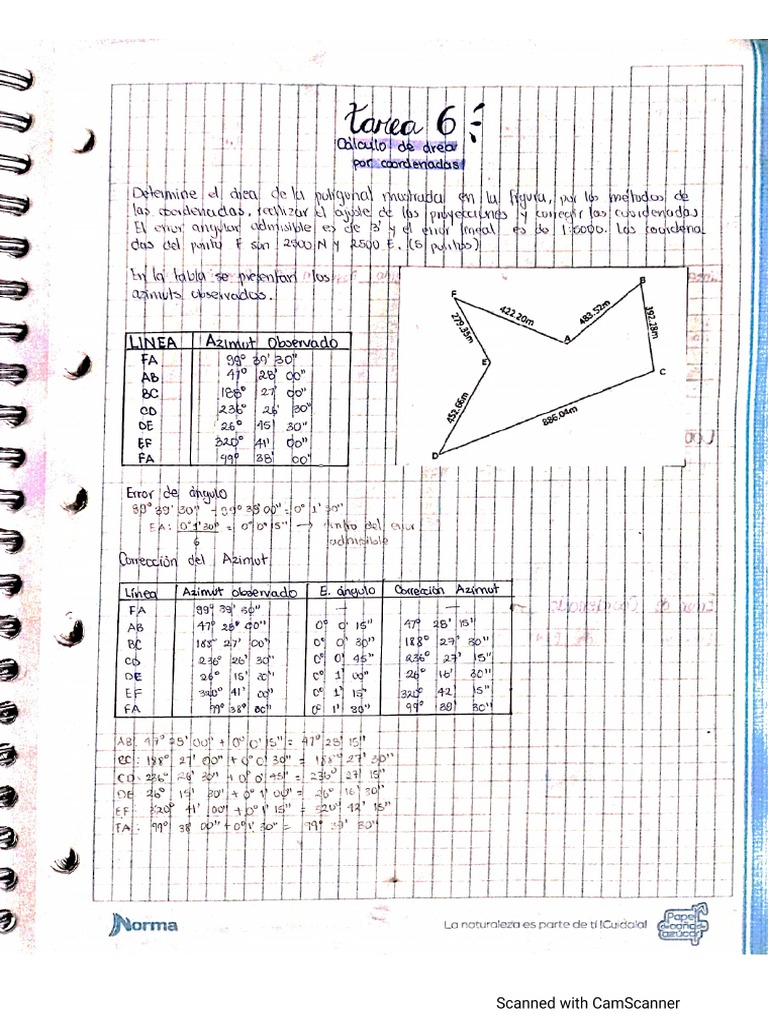 tarea 6
Cálculo de área
por coordenadas
Determine el área de la poligonal mostrada en la figura, por los métodos de
las coordenadas, realizar el ajuste de las proyecciones y corregir las coordenadas
El error angular admisible es de 3' y el error lineal es de 1:5000. Las coordena
das del punto F son 2500 N y 2500 E. (5 puntos)
En la tabla se presentan los
azimuts observados.
LINEA Azimut Observado
FA 99° 39' 30"
AB 47° 28' 00"
BC 188° 27' 00"
CD 236° 26' 30"
DE 26° 15' 30"
EF 320° 41' 00"
FA 99° 38' 00"
F
422.20m
B
483.52m
A
192.28m
279.35m
E
C
452.66m
886.04m
D
Error de ángulo
99° 39' 30" - 99° 38' 00" = 0° 1' 30"
EA: 0° 1' 30" = 0° 0' 15" → dentro del error
6 admisible
Corrección del Azimut
Línea Azimut observado E. ángulo Corrección Azimut
FA 99° 39' 30" — —
AB 47° 28' 00" 0° 0' 15" 47° 28' 15"
BC 188° 27' 00" 0° 0' 30" 188° 27' 30"
CD 236° 26' 30" 0° 0' 45" 236° 27' 15"
DE 26° 15' 30" 0° 1' 00" 26° 16' 30"
EF 320° 41' 00" 0° 1' 15" 320° 42' 15"
FA 99° 38' 00" 0° 1' 30" 99° 39' 30"
AB: 47° 28' 00" + 0° 0' 15" = 47° 28' 15"
BC: 188° 27' 00" + 0° 0' 30" = 188° 27' 30"
CD: 236° 26' 30" + 0° 0' 45" = 236° 27' 15"
DE 26° 15' 30" + 0° 1' 00" = 26° 16' 30"
EF: 320° 41' 00" + 0° 1' 15" = 320° 42' 15"
FA: 99° 38' 00" + 0° 1' 30" = 99° 39' 30"
Norma
La naturaleza es parte de ti ¡Cuídala!
Papel
caña de
azúcar
Scanned with CamScanner